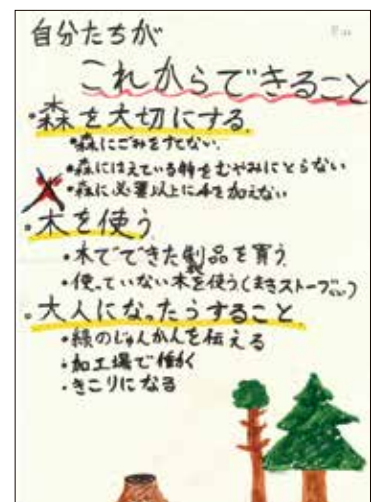 自分たちが
これからできること
・森を大切にする
・森にごみをすてない.
・森にはえている物をむやみにとらない
・森に必要以上に手を加えない
・木を使う
・木でできた製品を買う
・使っていない木を使う(まきストーブ
・大人になったらすること
・緑のじゅんかんを伝える
・加工場で働く
・きこりになる